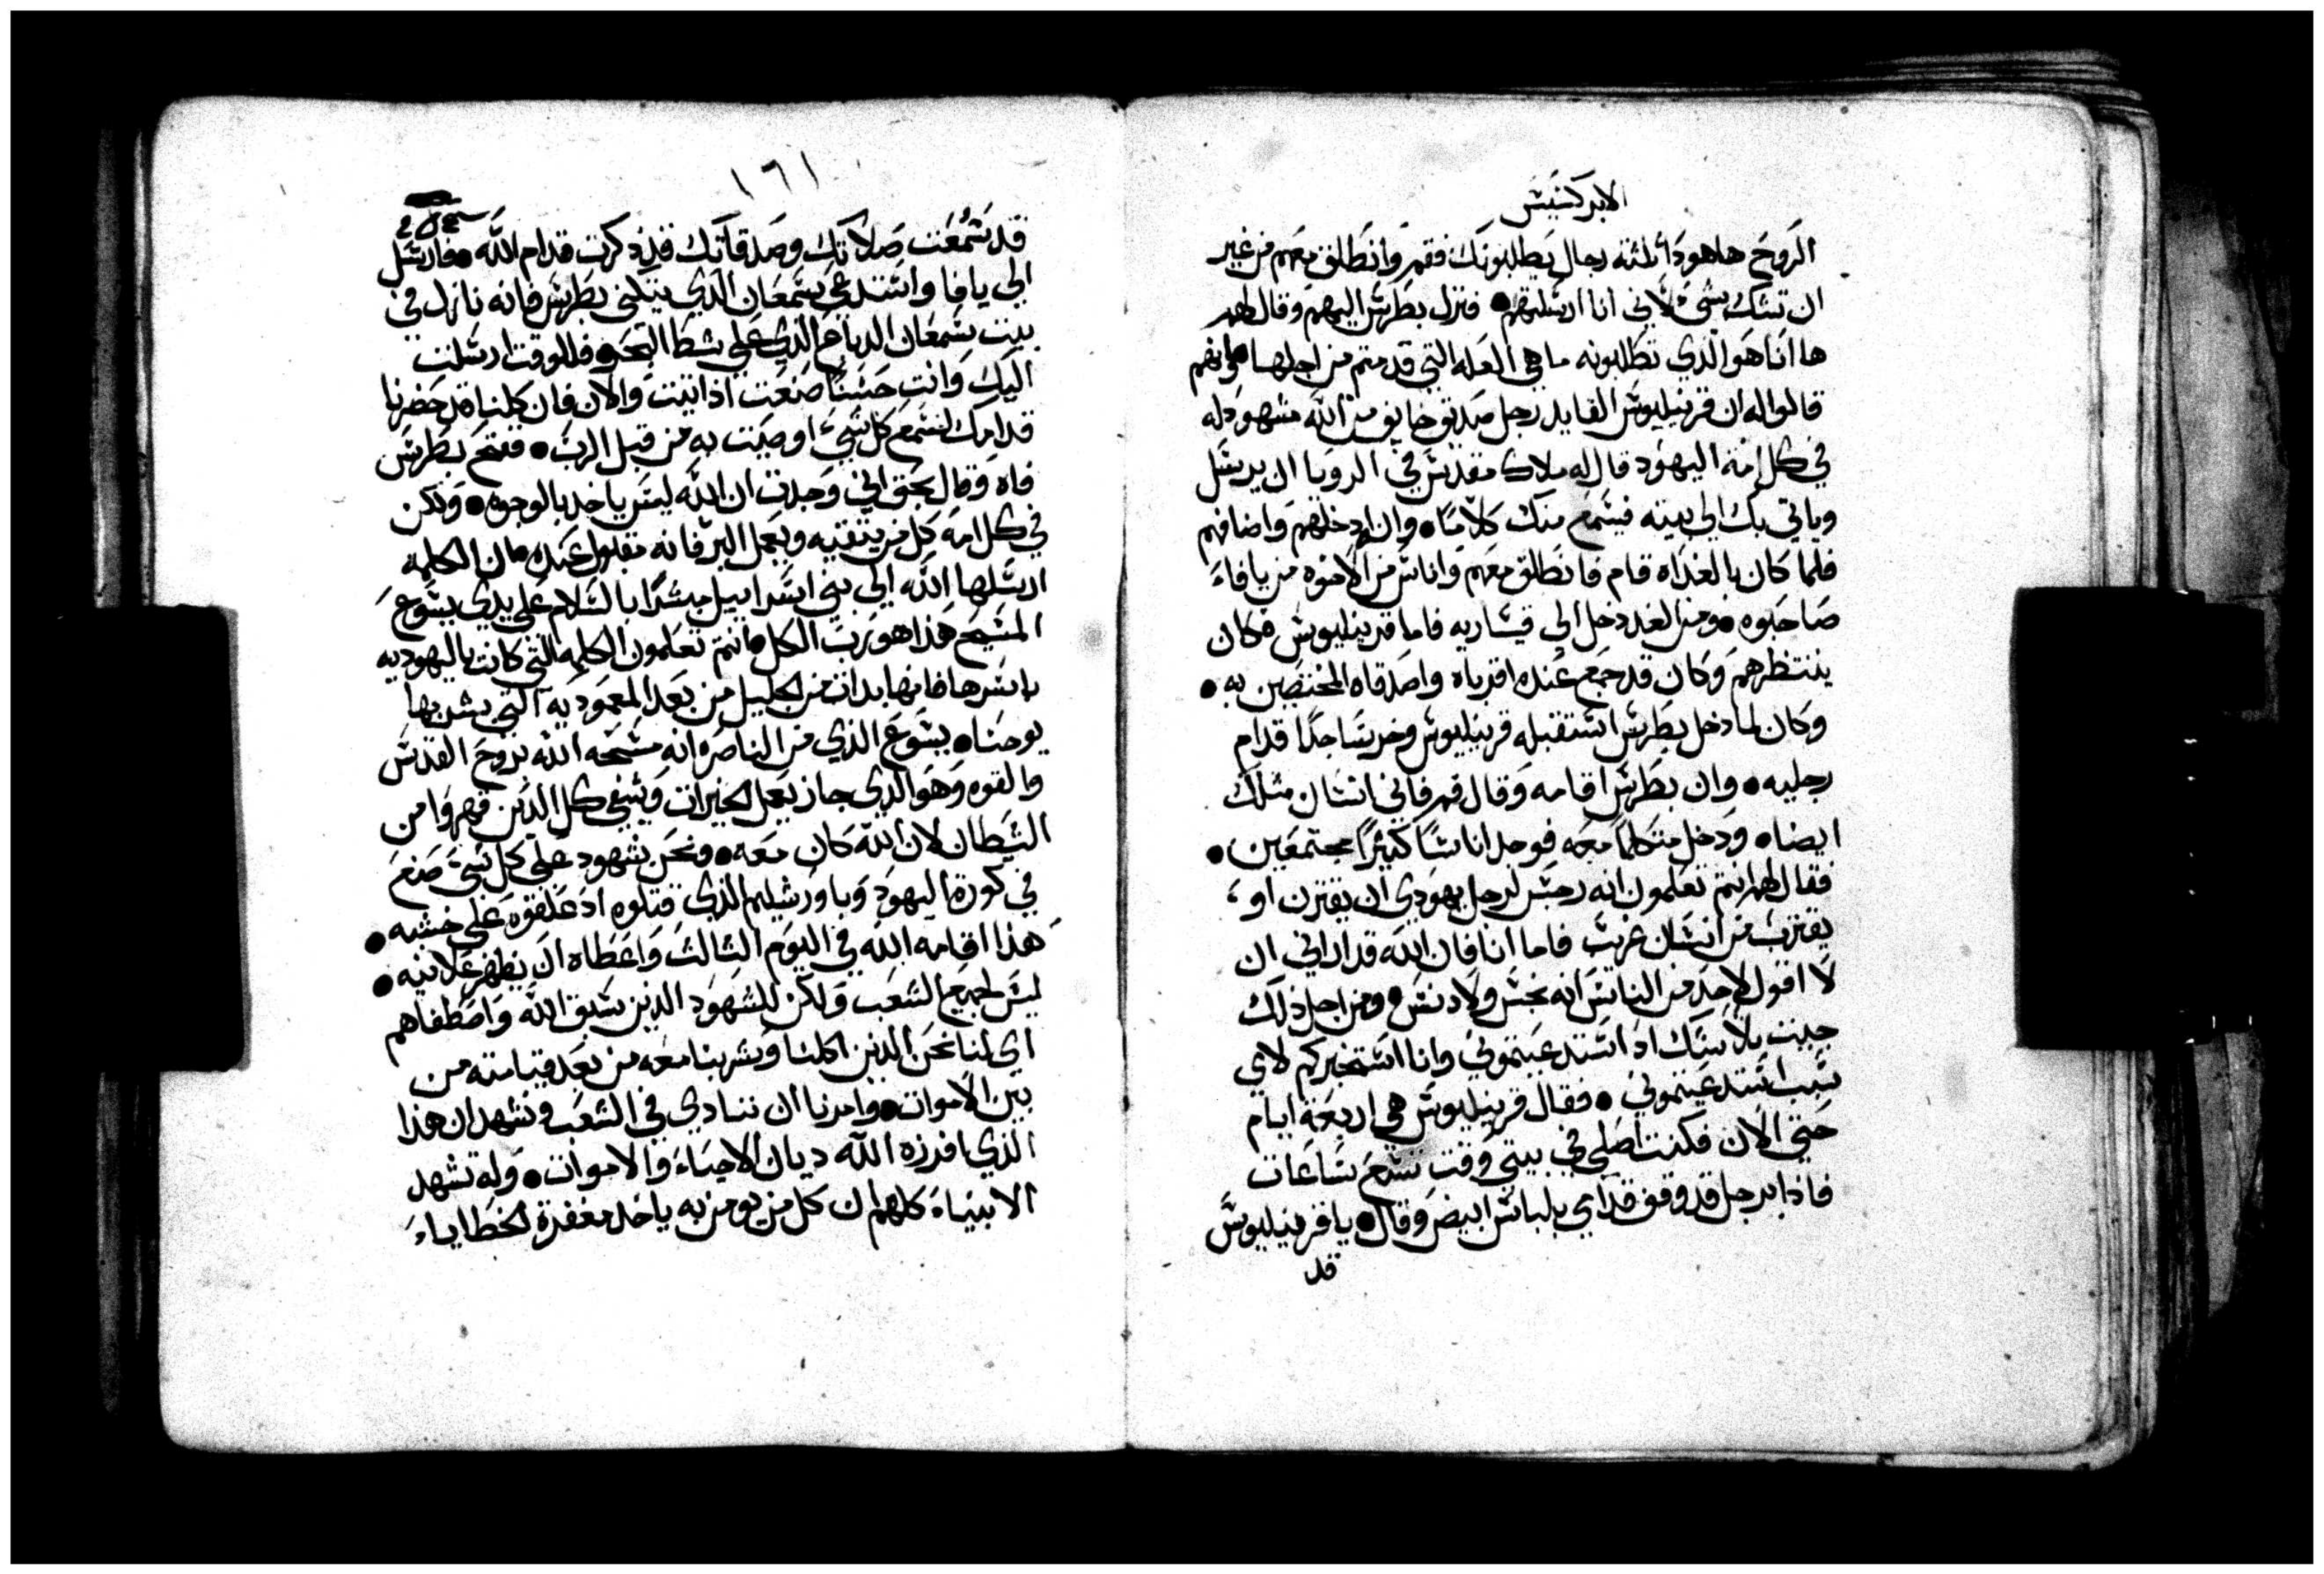 الابركسيس
الروح هاهوذا ثلثة رجال يطلبونك فقم وانطلق معهم من غير
ان تشك بشي لاني انا ارسلتهم • فنزل بطرس اليهم وقال لهم
ها انا هو الذي تطلبونه ما هي العله التي قدمتم من اجلها • وانهم
قالوا له ان قرنيليوس القايد رجل صديق خايف من الله مشهود له
في كل امة اليهود قال له ملاك مقدس في الرويا ان يرسل
وياتي بك الي بيته فيسمع منك كلاما • وان ادخلهم واضافهم
فلما كان بالغداه قام فانطلق معهم واناس من الاخوه من يافا
صاحبوه • ومن الغد دخل الي قيساريه فاما قرنيليوس فكان
ينتظرهم وكان قد جمع عنده اقرباه واصدقاه المختصين به •
وكان لما دخل بطرس استقبله قرنيليوس وخر ساجدا قدام
رجليه • وان بطرس اقامه وقال قم فاني انسان مثلك
ايضا • ودخل متكلما معه فوجد اناسا كثيرا مجتمعين •
فقال لهم انتم تعلمون انه رجس لرجل يهودي ان يقترن او
يقترب من انسان غريب فاما انا فان الله قد اراني ان
لا اقول لاحد من الناس انه نجس ولا دنس • ومن اجل ذلك
جيت بلا شك اذ استدعيتموني وانا استخبركم لاي
سبب استدعيتموني • فقال قرنيليوس هي اربعة ايام
حتي الان فكنت اصلي في بيتي وقت تسع ساعات
فاذا برجل قد وقف قدامي بلباس ابيض وقال • يا قرنيليوس
قد
١٦١
قد سمعت صلاتك وصدقاتك قد ذكرت قدام الله • فارسل
الي يافا واستدعي سمعان الذي يتكني بطرس فانه نازل في
بيت سمعان الدباغ الذي علي شط البحر • فللوقت ارسلت
اليك وانت حسنا صنعت اذ اتيت والان فان كلنا قد حضرنا
قدامك لنسمع كل شيء اوصيت به من قبل الرب • ففتح بطرس
فاه وقال بحق اني وجدت ان الله ليس ياخد بالوجوه • ولكن
في كل امة كل من يتقيه ويعمل البر فانه مقبول عنده • ان الكلمة
ارسلها الله الي بني اسراييل مبشرا بالسلام علي يدي يسوع
المسيح هذا هو رب الكل • انتم تعلمون الكلمه التي كانت باليهوديه
باسرها فانها بدات من الجليل من بعد المعموديه التي بشر بها
يوحنا • يسوع الذي من الناصره انه مسحه الله بروح القدس
والقوه وهو الذي جاز يعمل الخيرات ويشفي كل الذين قهروا من
الشيطان لان الله كان معه • ونحن شهود علي كل شي صنع
في كورة اليهود وباورشليم الذي قتلوه اذ علقوه علي خشبه •
هذا اقامه الله في اليوم الثالث واعطاه ان يظهر علانيه •
ليس لجميع الشعب ولكن للشهود الذين سبق الله واصطفاهم
اي لنا نحن الذين اكلنا وشربنا معه من بعد قيامته من
بين الاموات • وامرنا ان ننادي في الشعب ونشهد ان هذا
الذي افرزه الله ديان الاحياء والاموات • وله تشهد
الانبياء كلهم ان كل من يومن به ياخذ مغفرة الخطايا